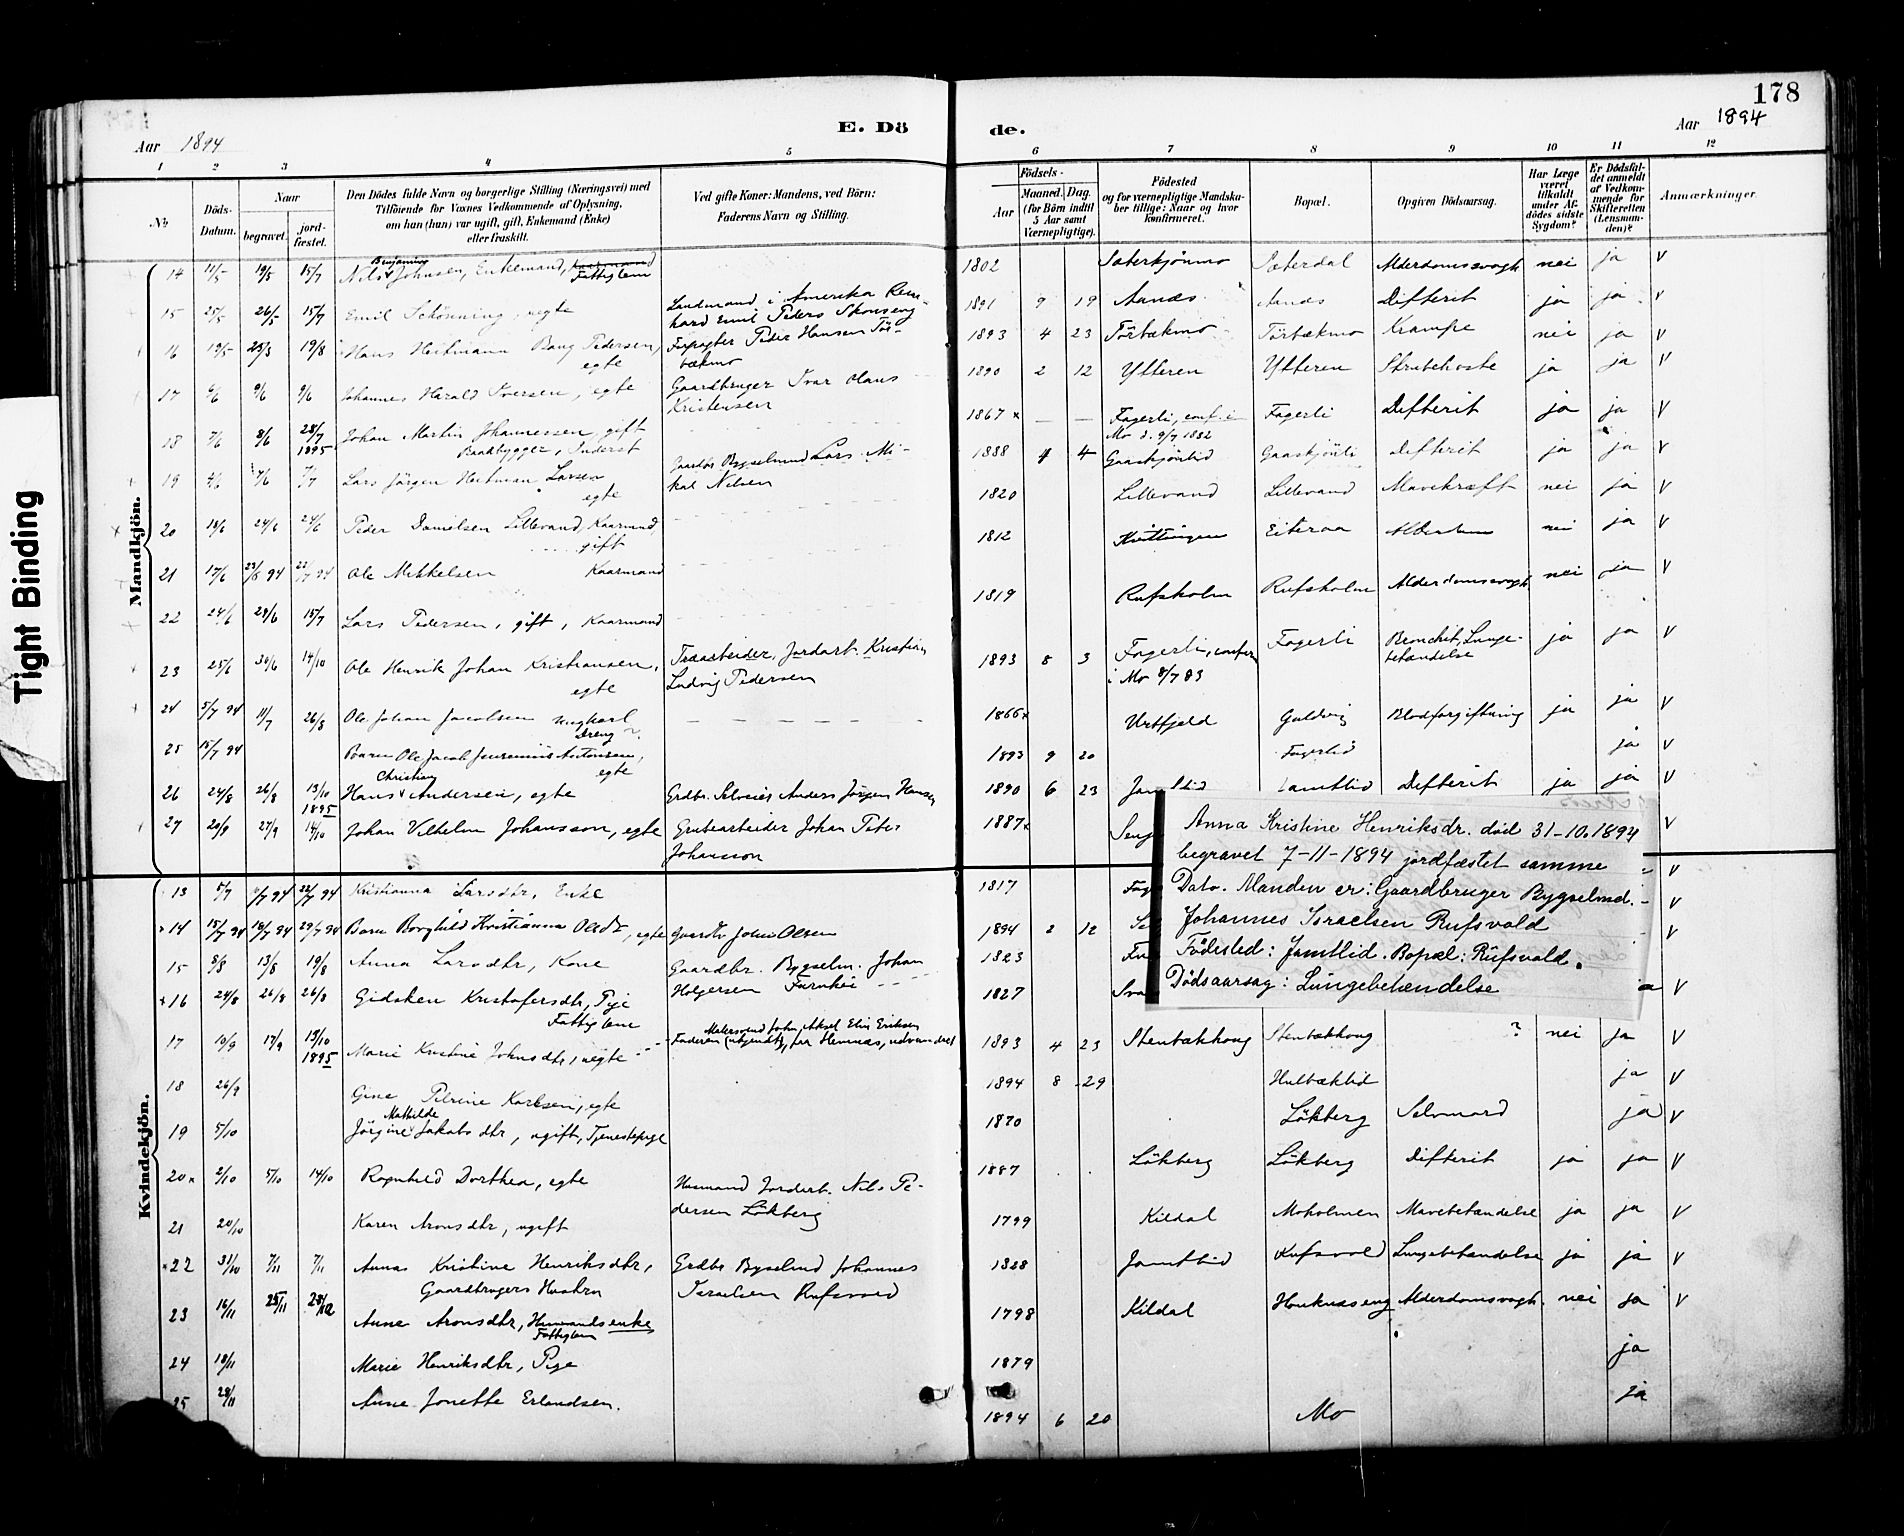 178
Aar 1894
E. Dö
de.
Aar 1894
1 2 3 4 5
6 7 8 9 10 11 12
No.
Döds-Datum.
Naar
begravet.
jordfæstet.
Den Dödes fulde Navn og borgerlige Stilling (Næringsvei) med
Tilföiende for Voxnes Vedkommende af Oplysning,
om han (hun) var ugift, gift, Enkemand (Enke)
eller fraskilt.
Ved gifte Koner: Mandens, ved Börn:
Faderens Navn og Stilling.
Födsels-
Aar
Maaned. Dag.
(for Börn indtil
5 Aar samt
Værnepligtige).
Födested
og for værnepligtige Mandskaber tillige: Naar og hvor
konfirmeret.
Bopæl.
Opgiven Dödsaarsag.
Har Læge
været
tilkaldt
under Afdödes sidste
Sygdom?
Er Dödsfaldet anmeldt
af Vedkommende for
Skifteretten
(Lensmanden)?
Anmærkninger.
Mandkjön.
14 19/5 15/7 Nils Johnsen, Enkemand, Fattiglem 1802 Alderdomssvagh nei ja V
15 25/5 26/5 15/7 Emil Schönning, uegte Landmand i Amerika 1891 9 19 Aanæs Aanæs Difterit ja ja V
16 19/5 19/8 Hans Heitmann Bang Pedersen, egte Forpagter Peder Hansen 1893 4 23 Törbækmo Törbækmo Krampe nei ja V
17 9/6 9/6 Johannes Harald Iversen, egte Gaardbruger Ivar Olaus Kristensen 1890 2 12 Ytteren Ytteren Strubehoste ja ja V
18 7/6 8/6 28/7 1895 Johan Martin Johannessen, gift Baadbygger, Inderst 1867 Fagerli, conf. i Mo d. 9/7 1882 Fagerli Difterit ja ja V
19 7/6 7/7 Lars Jörgen Heitman Larsen egte Bygselmand Lars Mikal Nilsen 1888 4 4 Difterit ja ja V
20 24/6 24/6 Peder Danielsen Lillevand, Kaarmand, gift 1820 Lillevand Lillevand Mavekræft nei ja V
21 17/6 Ole Mikkelsen Kaarmand 1812 Eiteraa nei ja V
22 24/6 28/6 15/7 Lars Pedersen, gift, Kaarmand 1819 Rufsholm Rufsholm Alderdomssvagh nei ja V
23 25/6 30/6 14/10 Ole Henrik Johan Kristiansen, egte Kristian Ludvig Pedersen 1893 8 3 Fagerli, i Mo 8/7 83 Fagerli Bronchit, Lungebetændelse ja ja V
24 5/7 94 11/7 26/8 Ole Johan Jacobsen ungkarl Dreng 1866 Urtfjeld Guldvig Blodforgiftning ja ja V
25 15/7 94 Barn Ole Jacob Antonsen, egte 1893 9 20 Fagerlid ja V
26 24/8 26/8 13/10 1895 Hans Christian Andersen, egte Grdbr. Selveier Anders Jörgen Hansen 1890 6 23 Difterit ja ja V
27 20/9 27/9 14/10 Johan Vilhelm Johansson, egte Grubearbeider Johan Peter Johansson 1887 V
Anna Kristine Henriksdr. död 31-10.1894
begravet 7-11-1894 jordfæstet samme
Dato. Manden er: Gaardbruger Bygselmd.
Johannes Israelsen Rufsvold
Födested: Jamtlid. Bopæl: Rufsvold.
Dödsaarsag: Lungebetændelse
Kvindekjön.
13 5/7 22/7 94 Kristianna Larsdtr, Enke 1817 V
14 15/7 94 19/7 94 29/7 94 Barn Borghild Kristianna Olsdtr, egte John Olsen 1894 2 12 V
15 8/8 13/8 19/8 Anna Larsdtr, Kone Gaardbr. Bygselm. Johan Holgersen Furuhei 1823 V
16 24/8 26/8 26/8 Gidsken Kristofersdtr, Pige Fattiglem 1827 V
17 10/9 17/9 13/10 1895 Marie Kristine Johnsdtr, uegte Faderen John Aksel Elin Eriksen 1893 4 23 Stenbækhaug Stenbækhaug ? nei ja V
18 26/9 Gine Petrine Karlsen, egte 1894 8 29 Hulbæklid ja V
19 5/10 Jörgine Mathilde Jakobsdtr, ugift, Tjenestepige 1870 Lökberg Selvmord ja V
20 2/10 5/10 14/10 Ragnhild Dorthea, egte Husmand Nils Pedersen Lökberg 1887 Lökberg Lökberg Difterit ja ja V
21 20/10 Karen Aronsdtr, ugift 1799 Kildal Moholmen Mavebetændelse ja ja V
22 31/10 7/11 7/11 Annas Kristine Henriksdtr, Gaardbrugers Hustru Grdbr Bygselmd Johannes Israelsen Rufsvold 1828 Jamtlid Rufsvold Lungebetændelse ja ja V
23 16/11 25/11 Anne Aronsdtr, Husmandsenke Fattiglem 1798 Kildal Hauknæseng Alderdomssvagh. nei ja V
24 18/11 Marie Henriksdtr, Pige 1879 ja
25 28/11 Anne Jonette Erlandsen. 1894 6 20 Mo ja
Tight Binding